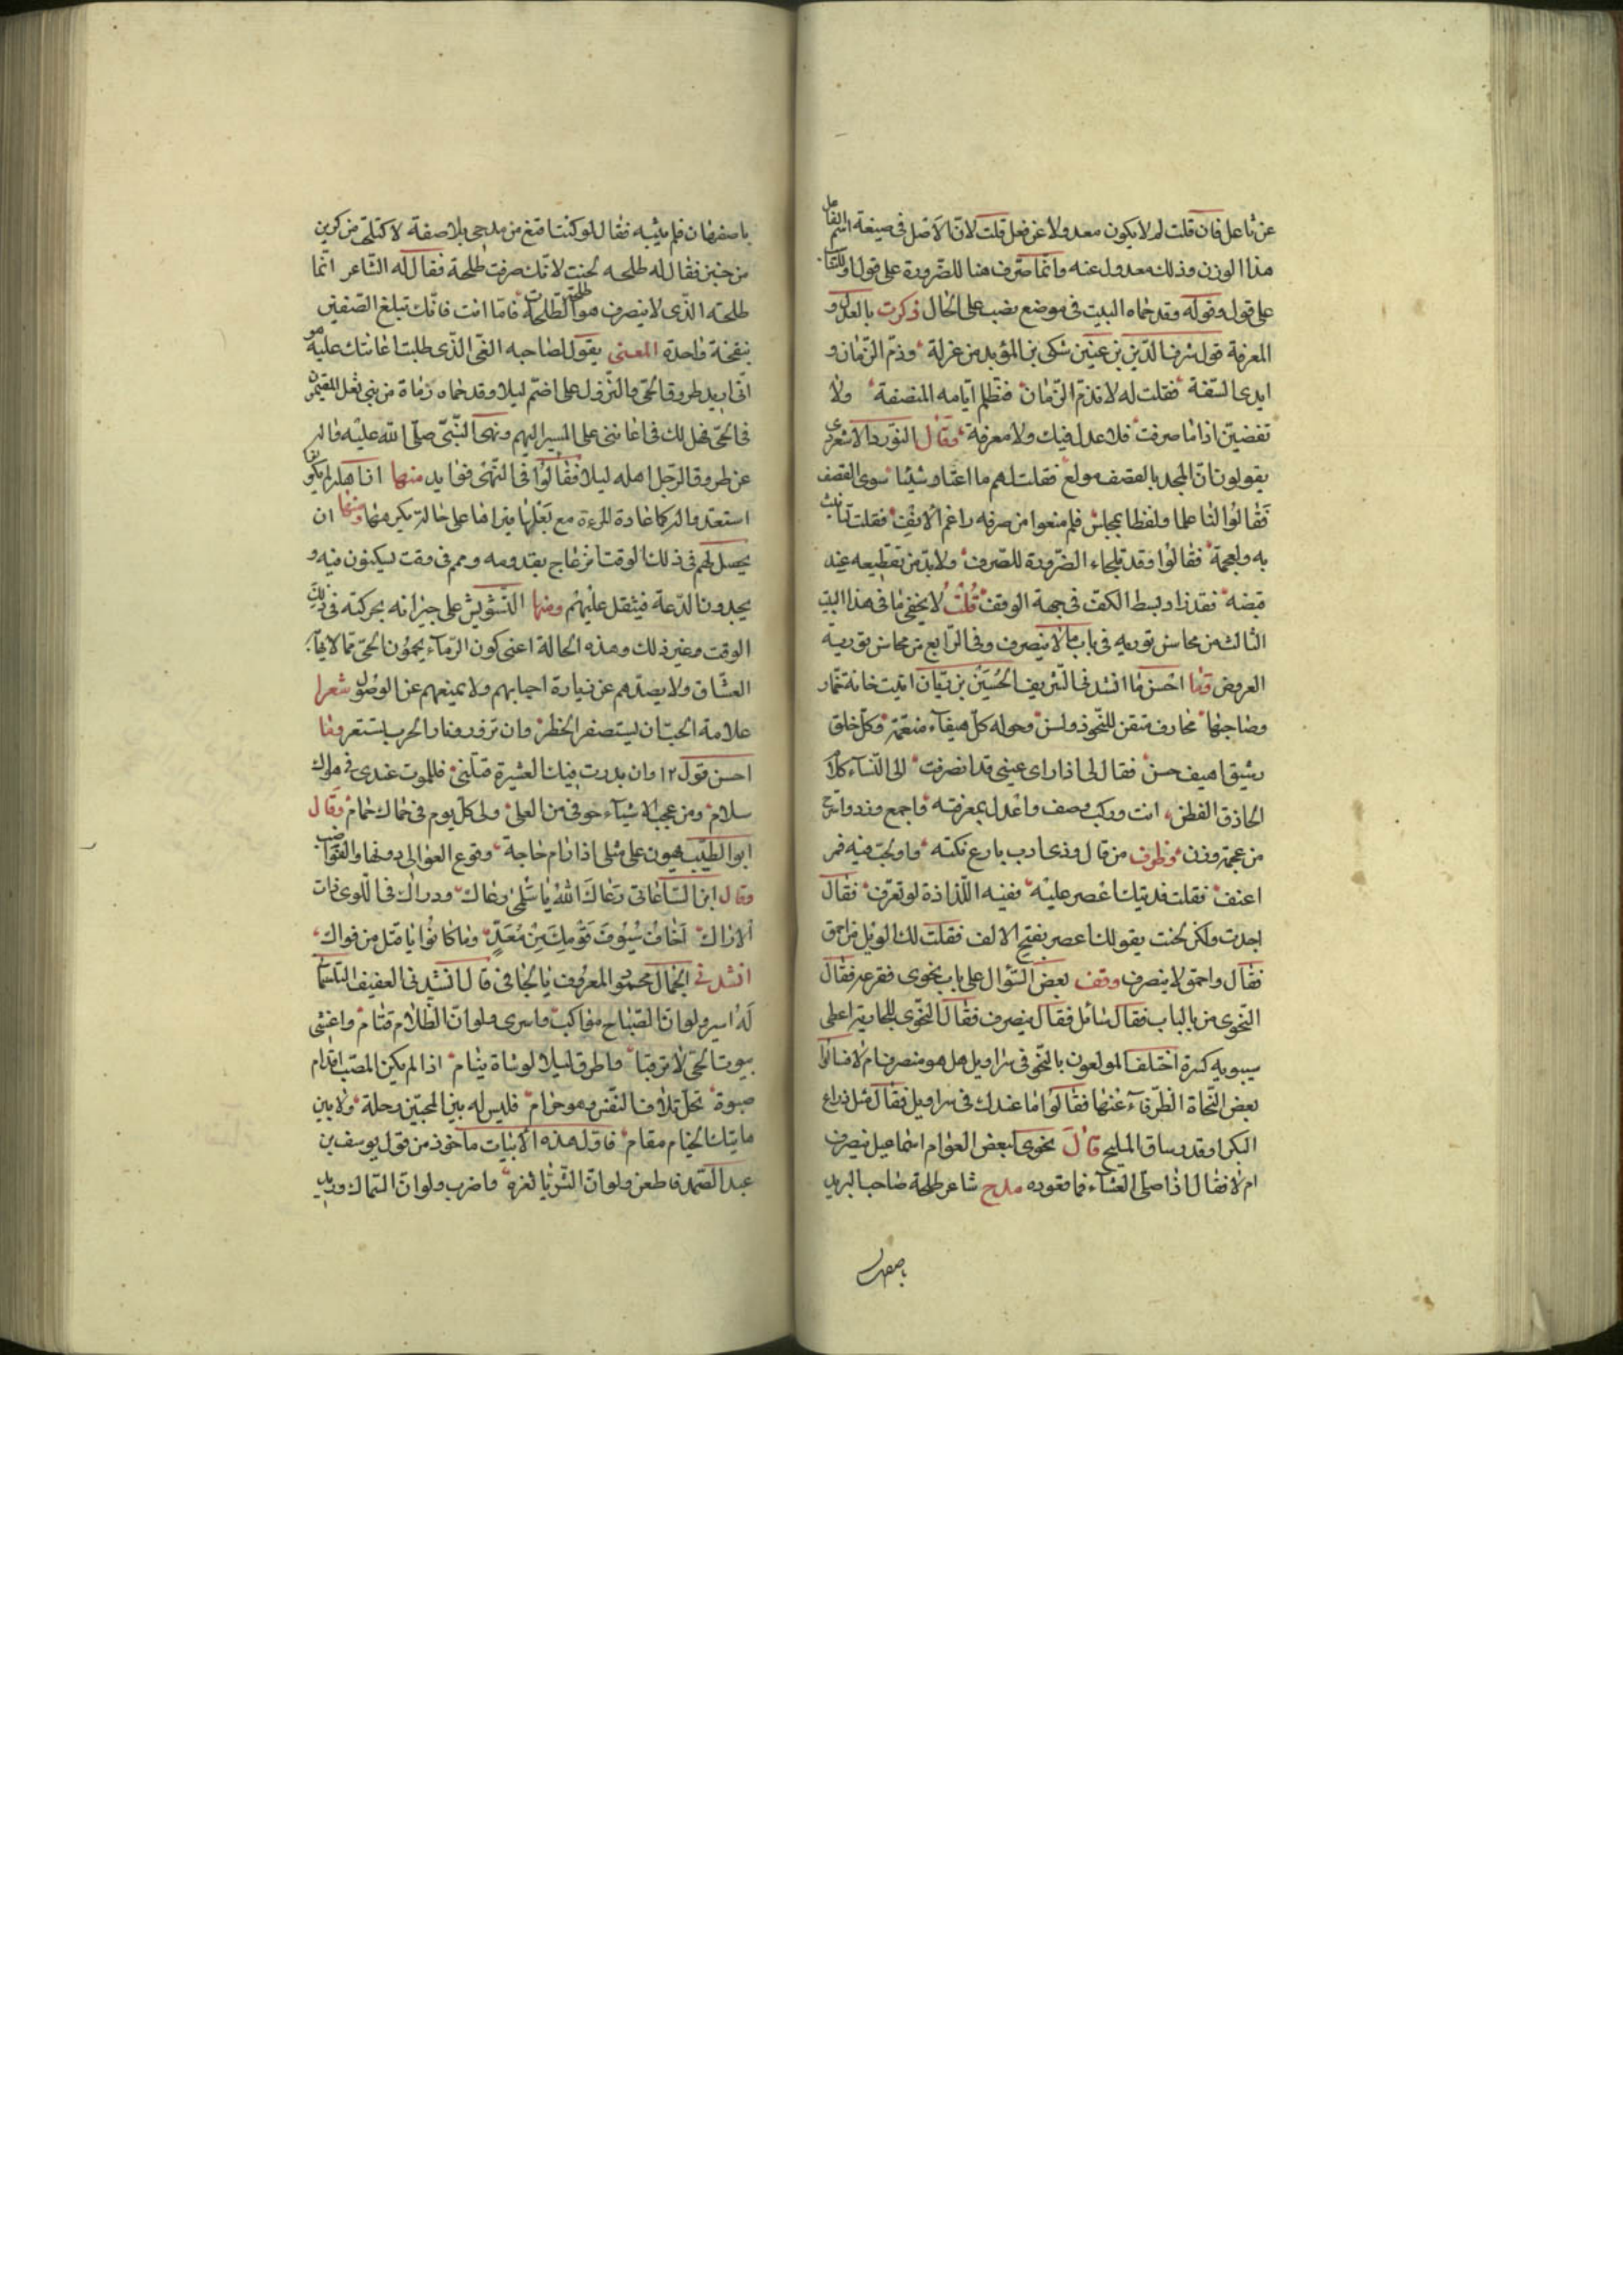 عن فاعل فان قلت لم لا يكون معدولا عن فعل قلت لان الاصل فى صيغة اسم الفاعل
هذا الوزن وذلك معدول عنه وانما صرف هنا للضرورة على قول
على قول وقوله وقد حماه البيت فى موضع نصب على الحال ذكرت بالعدل و
المعرفة قول شرف الدين بن عنين شكى بن المؤيد من عزلة وذم الزمان و
ابدى السفة فقلت له لا تذم الزمان فتظلم ايامه المنصفة ولا
تغضبن اذا ما صرفت فلا عدل فيك ولا معرفة وقال النور الاسعردى
يقولون ان المجد بالقصف مولع فقلت لهم ما اعتاد شيئا سوى القصف
فقالوا لنا علما ولفظا بمجلس فلم منعوا من صرفه راغم الانف فقلت تانيث
به ولعجمة فقالوا وقد تلجاء الضرورة للصرف ولا بد من تقطيعه عند
قبضه فقد زاد بسط الكف فى جهة الوقف قلت لا يخفى ما فى هذا البيت
الثالث من محاسن توريه فى باب ما لا ينصرف وفى الرابع من محاسن توريه
العروض وما احسن ما انشد فى الشريف الحسين بن ريان اتيت خانة خمار
وصاحبها محارف متقن للنحو ذو لسن وحوله كل هيفاء منعمة وكل خلق
رشيق اهيف حسن فقال لى اذا راى عينى قد انصرفت الى النساء كلام
الحاذق الفطن انت وركب وصف واعدل بمعرفة واجمع وزد واسترح
من عجمة وزن وظرف من قال وذى ادب بارع نكته فاولجت فيه فمر
اعنف فقلت فديتك اعصر عليه ففيه اللذاذة لو تعرف فقال
اجدت ولكن لحنت بقولك اعصر بفتح الالف فقلت لك الويل من احمق
فقال واحمق لا ينصرف وقف بعض السؤال على باب نحوى فقرعه فقال
النحوى من بالباب فقال سائل فقال ينصرف فقال النحوى للجارية اعطى
سيبويه كسرة اختلف المولعون بالنحو فى سراويل هل هو منصرف ام لا فسالوا
بعض النحاة الظرفاء عنها فقالوا ما عندك فى سراويل فقال مثل ذراع
البكر او قد وساق المليح قال نحوى لبعض العوام اسماعيل ينصرف
ام لا فقال اذا صلى العشاء فما قعوده مدح شاعر طلحة صاحب البريد
باصفهان
باصفهان فلم يثبه فقال لو كنت
من حنين فقال له طلحه لحنت لانك صرفت طلحة فقال له الشاعر انما
طلحه الذى لا ينصرف هو طلحة الطلحات فاما انت فانك تبلغ الصفين
بنفخة واحدة المعنى يقول لصاحبه الفتى الذى طلبت اعانتك عليه هو
انى اريد طروق الحى والنزول على اضم ليلا وقد حماه رماة من بنى ثعل المقيمين
فى الحى فهل لك فى اعانتى على المسير اليهم ونهى النبى صلى الله عليه واله
عن طروق الرجل اهله ليلا فقالوا فى النهى فوايد منها
استعد واله كما عادة المرءة مع بعلها فيراها على حالة يكرهها ومنها ان
يحصل لهم فى ذلك الوقت انزعاج بقدومه وهم فى وقت يسكنون فيه و
يجدون الدعة فيثقل عليهم ومنها التشويش على جيرانه بحركته فى ذلك
الوقت وغير ذلك وهذه الحالة اعنى كون الرماء يحمون الحى مما لا يهاب
العشاق ولا يصدهم عن زيارة احبابهم ولا يمنعهم عن الوصول شعرا
علامة الحب ان يستصغر الخطر وان تزور ونار الحرب تستعر وما
احسن قول ١٢ وان بدرت فيك العشيرة قتلنى فللموت عندى فى هواك
سلام ومن عجب الاشياء خوفى من العلى ولى كل يوم فى حماك حمام وقال
ابو الطيب يهون على مثلى اذا رام حاجة وقوع العوالى دونها والقواضب
وقال ابن الساعاتى رعاك الله يا سلمى رعاك ودراك فى اللوى ذات
الاراك اخاف سيوف قومك من معد وما كانوا يا قتل من فواك
انشد فى الجمال محمود المعروف بالجافى قال انشد فى العفيف التلمسانى
له اسير ولو ان الصباح مواكب واسرى ولو ان الظلام قتام واغشى
بيوت الحى لا مترقبا واطرق ليلا لو شاة ينام اذا لم يكن للصب اقدام
صبوة تحل تلاف النفس وهو حرام فليس له بين المحبين رحلة ولا بين
هاتيك الخيام مقام فاول هذه الابيات ماخوذ من قول يوسف بن
عبد الصمد فاطعن ولو ان الثريا لغره واضرب ولو ان السماك وريد